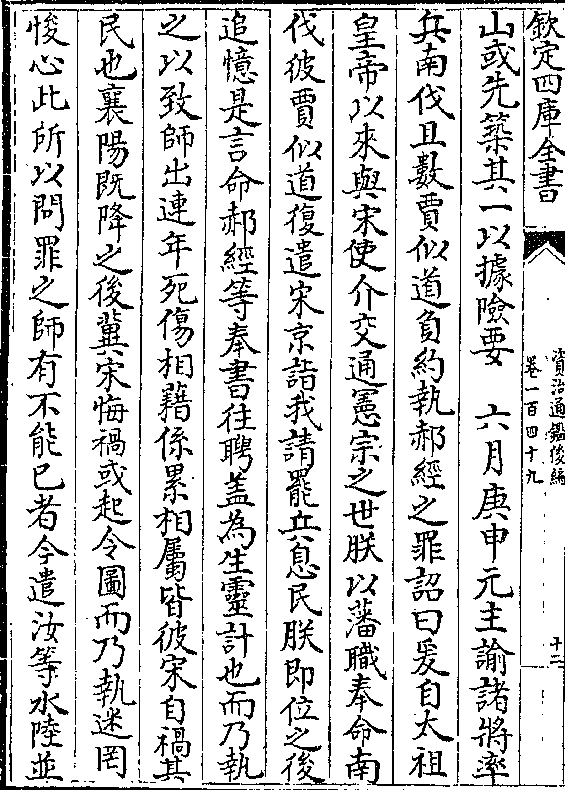 欽定四庫全書
資治通鑑後編
卷一百四十九
十二
山或先築其一以據險要　六月庚申元主諭諸將率
兵南伐且數賈似道負約執郝經之罪詔曰爰自太祖
皇帝以來與宋使介交通憲宗之世朕以藩職奉命南
伐彼賈似道復遣宋京詣我請罷兵息民朕即位之後
追憶是言命郝經等奉書往聘盖為生靈計也而乃執
之以致師出連年死傷相藉係累相屬皆彼宋自禍其
民也襄陽既降之後冀宋悔禍或起令圖而乃執迷罔
悛心此所以問罪之師有不能已者今遣汝等水陸並